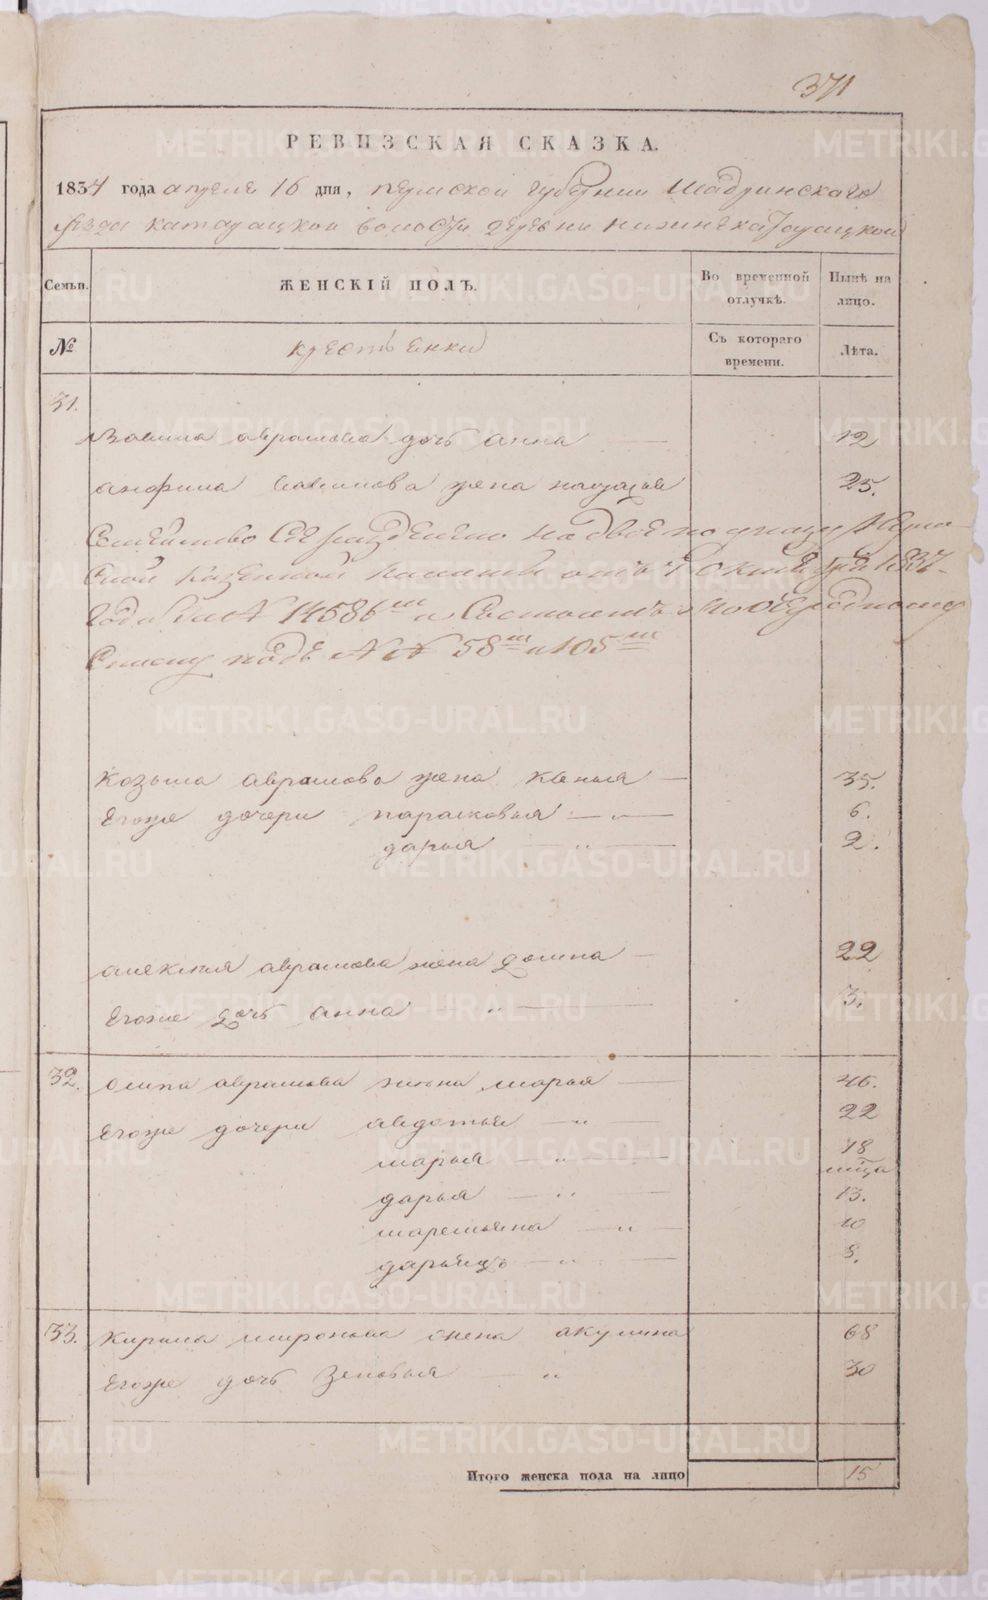 371
РЕВИЗСКАЯ СКАЗКА.
1834 года апреля 16 дня, Пермской губернии Шадринскаго
уезда катадацкой волости деревни нижнекатадацкой
Семьи. ЖЕНСКІЙ ПОЛЪ. Во временной отлучкѣ. Нынѣ на лицо.
№ крестьянки Съ котораго времени. Лѣта.
31.
аврамова дочь анна 12
анфима Савинова жена наталья 25.
Семейство Сіе разделено на двое по указу Перм-
ской Казенной Палаты отъ 4 Октября 1834
Года за № 14586 и Состоитъ по Очередному
Списку подъ №№ 58 и 105
Козьма аврамова жена Ксенья 35.
Егоже дочери парасковья " 6.
дарья " 2.
алексея аврамова жена домна 22
Егоже дочь анна " 3.
32. Осипа аврамова жена марья 46.
Егоже дочери авдотья " 22
марья " 18
дарья " 13.
маремьяна " 10
дарьица " 8.
33. Кирила миронова жена акулина 68
Егоже дочь Зеновья " 30
Итого женска пола на лицо 15
METRIKI.GASO-URAL.RU